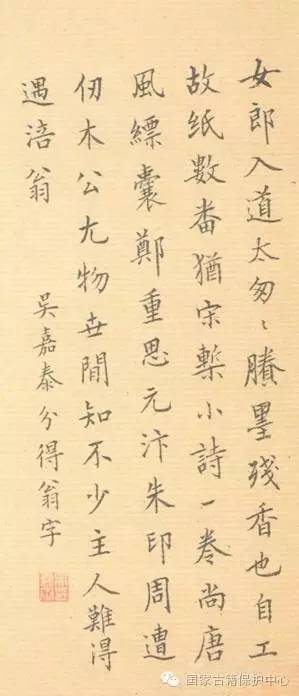 女郎入道太匆〻賸墨殘香也自工
故紙數番猶宋槧小詩一卷尚唐
風縹囊鄭重思元汴朱印周遭
仞木公尤物世間知不少主人難得
遇涪翁
吳嘉泰分得翁字
国家古籍保护中心